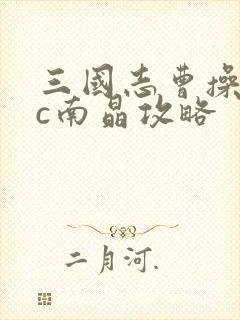 三國志曹操
c南晶攻略
二月河.